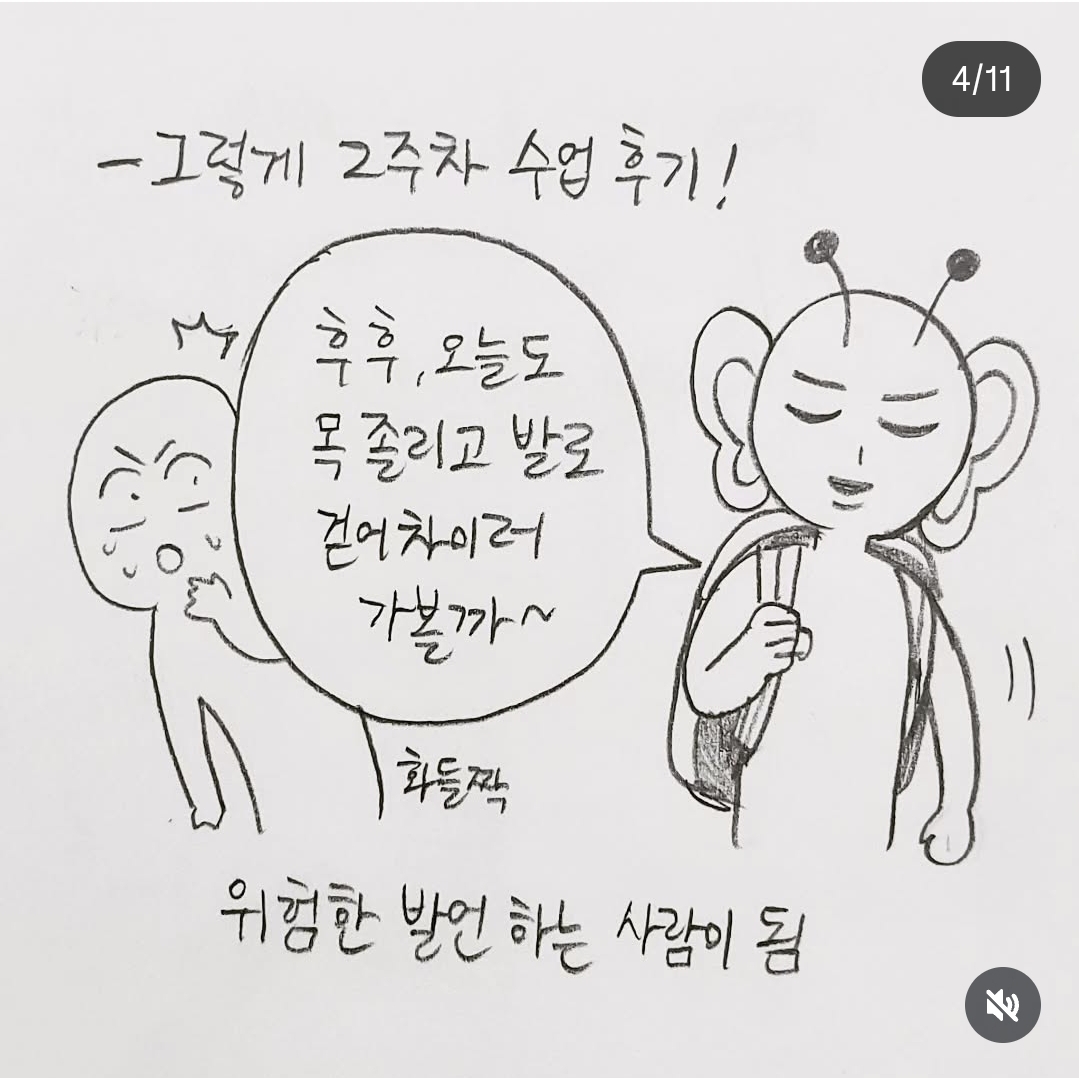 4/11
-그렇게 2주차 수업 후기!
후후, 오늘도
목 졸리고 발로
걷어차이러
가볼까~
화들짝
위험한 발언 하는 사람이 됨